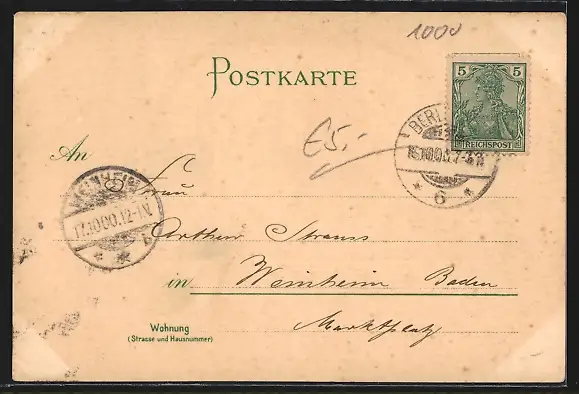 1000
POSTKARTE
5 5
REICHSPOST
BERLIN
15.10.00.7-8N.
* 6 *
E5.-
An
Frau
WEINHEIM
17.10.00.12-1N.
b
* *
Arthur Strauss
in Weinheim Baden
Marktplatz
Wohnung
(Strasse und Hausnummer)